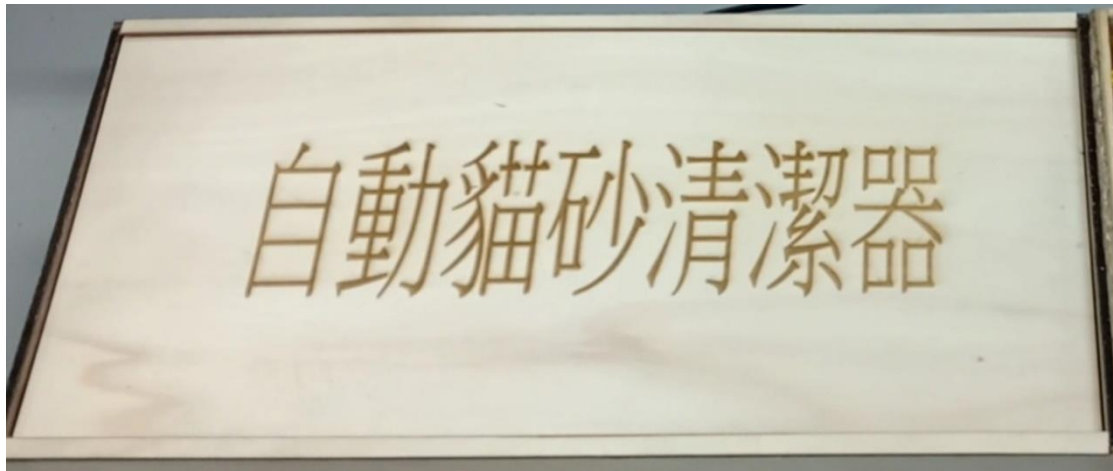 自動貓砂清潔器